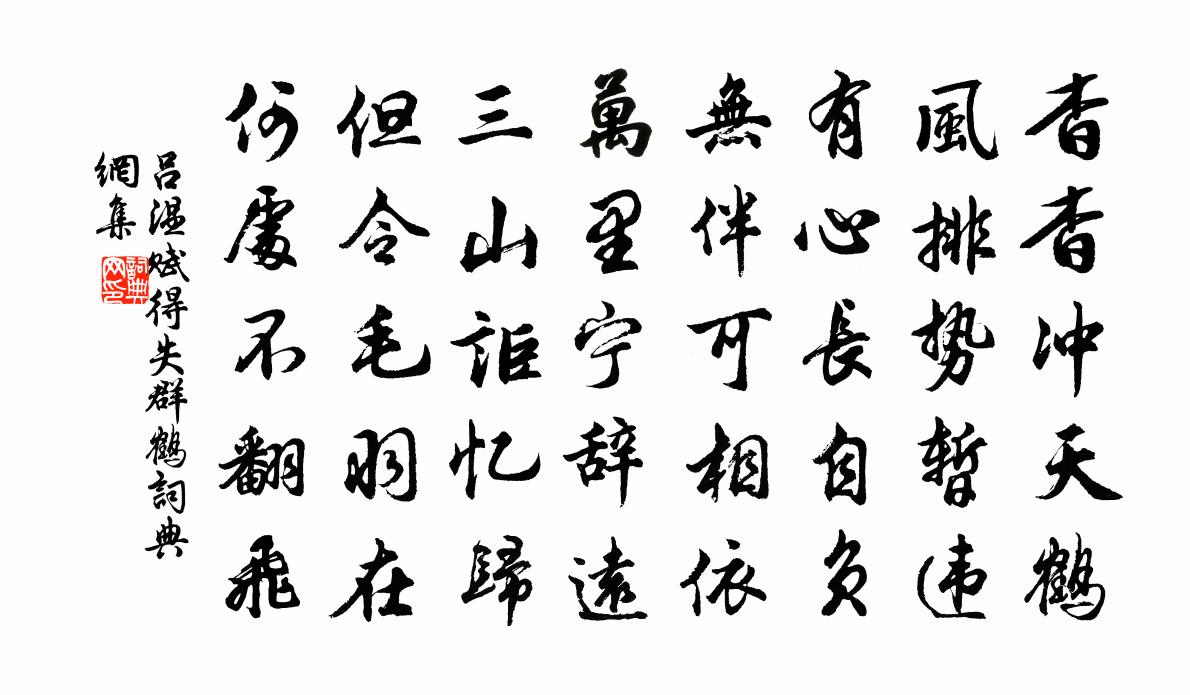 杳杳冲天鹤
風排势暫违
有心長自负
無伴可相依
萬里宁辞遠
三山詎忆歸
但令毛羽在
何處不翻飛
吕温赋得失群鹤詞典
網集
詞典
网印